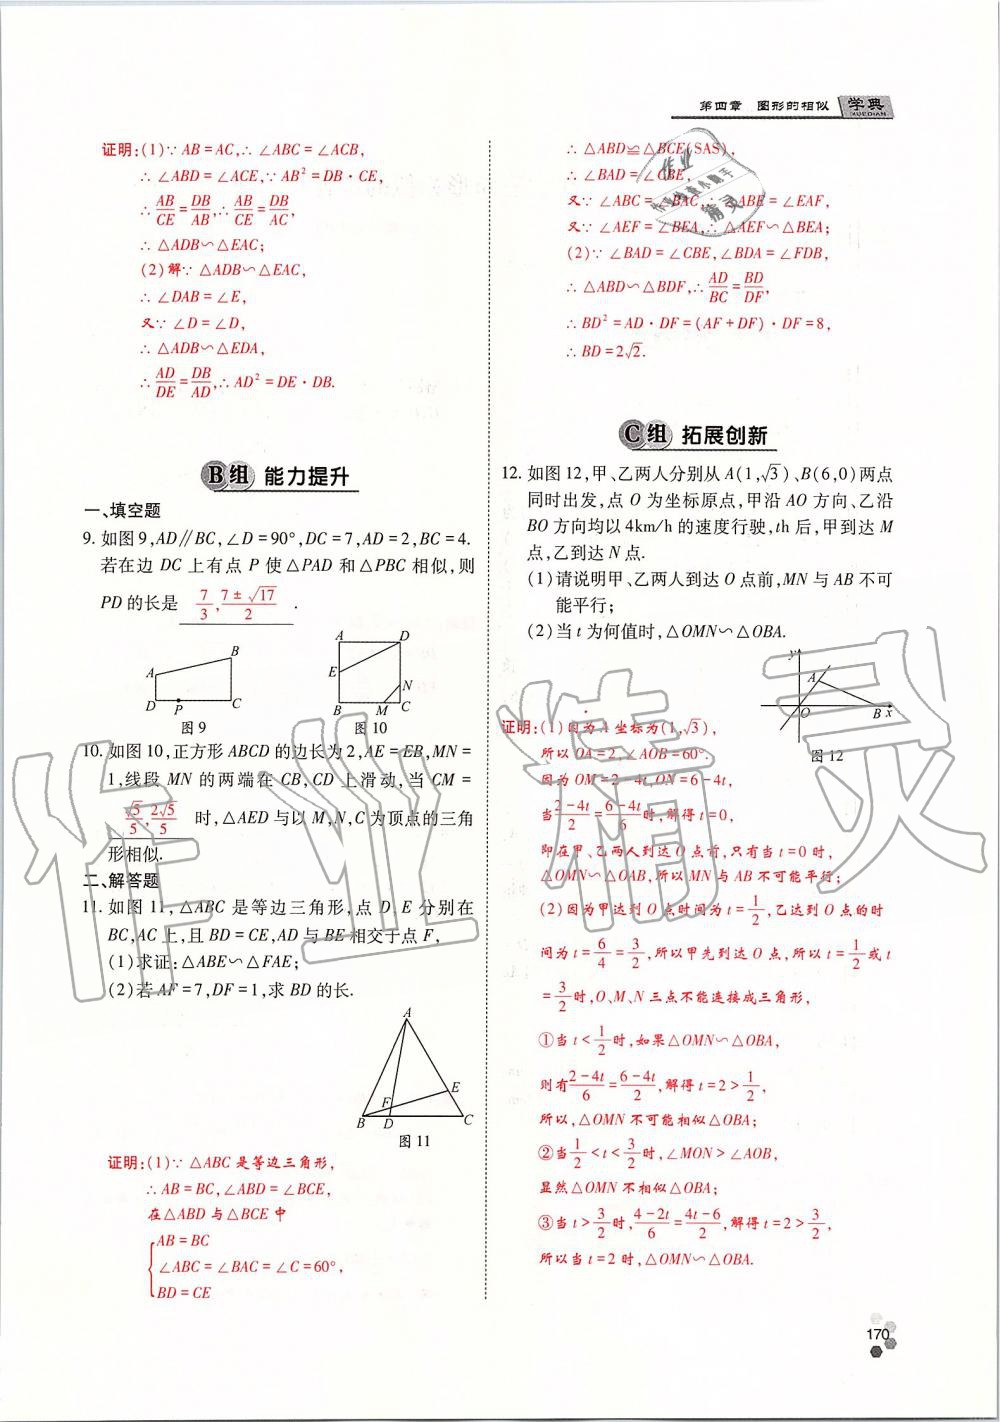 第四章 图形的相似 学典
XUEDIAN
证明:(1)∵ AB=AC,∴ ∠ABC=∠ACB,
∴ ∠ABD=∠ACE,∵ AB²=DB·CE,
∴ AB/CE=DB/AB,∴ AB/CE=DB/AC,
∴ △ADB∽△EAC;
(2)解∵ △ADB∽△EAC,
∴ ∠DAB=∠E,
又∵ ∠D=∠D,
∴ △ADB∽△EDA,
∴ AD/DE=DB/AD,∴ AD²=DE·DB.
B组 能力提升
一、填空题
9. 如图9,AD∥BC,∠D=90°,DC=7,AD=2,BC=4.
若在边 DC 上有点 P 使△PAD 和△PBC 相似,则
PD的长是 7/3,(7±√17)/2 .
A B D P C
图9
A D E N B M C
图10
10. 如图10,正方形 ABCD 的边长为2,AE=EB,MN=
1,线段 MN 的两端在 CB,CD 上滑动,当 CM=
√5/5,2√5/5 时,△AED与以M,N,C为顶点的三角
形相似.
二、解答题
11. 如图11,△ABC 是等边三角形,点 D,E 分别在
BC,AC上,且BD=CE,AD与BE相交于点F,
(1)求证:△ABE∽△FAE;
(2)若AF=7,DF=1,求BD的长.
A E F B D C
图11
证明:(1)∵ △ABC是等边三角形,
∴ AB=BC,∠ABD=∠BCE,
在△ABD与△BCE中
{AB=BC
∠ABC=∠BAC=∠C=60°,
BD=CE
∴ △ABD≌△BCE(SAS),
∴ ∠BAD=∠CBE,
又∵ ∠ABC=∠BAC,∴ ∠ABE=∠EAF,
又∵ ∠AEF=∠BEA,∴ △AEF∽△BEA;
(2)∵ ∠BAD=∠CBE,∠BDA=∠FDB,
∴ △ABD∽△BDF,∴ AD/BC=BD/DF,
∴ BD²=AD·DF=(AF+DF)·DF=8,
∴ BD=2√2.
C组 拓展创新
12. 如图12,甲、乙两人分别从A(1,√3)、B(6,0)两点
同时出发,点 O 为坐标原点,甲沿 AO 方向、乙沿
BO 方向均以4km/h的速度行驶,th后,甲到达 M
点,乙到达N点.
(1)请说明甲、乙两人到达 O 点前,MN 与 AB 不可
能平行;
(2)当t为何值时,△OMN∽△OBA.
y A O B x
图12
证明:(1)因为A坐标为(1,√3),
所以OA=2,∠AOB=60°.
因为OM=2-4t,ON=6-4t,
当(2-4t)/2=(6-4t)/6时,解得t=0,
即在甲、乙两人到达O点前,只有当t=0时,
△OMN∽△OAB,所以MN与AB不可能平行;
(2)因为甲达到O点时间为t=1/2,乙达到O点的时
间为t=6/4=3/2,所以甲先到达O点,所以t=1/2或t
=3/2时,O、M、N三点不能连接成三角形,
①当t<1/2时,如果△OMN∽△OBA,
则有(2-4t)/6=(6-4t)/2,解得t=2>1/2,
所以,△OMN不可能相似△OBA;
②当1/2<t<3/2时,∠MON>∠AOB,
显然△OMN不相似△OBA;
③当t>3/2时,(4-2t)/6=(4t-6)/2,解得t=2>3/2,
所以当t=2时,△OMN∽△OBA.
170
作业精灵